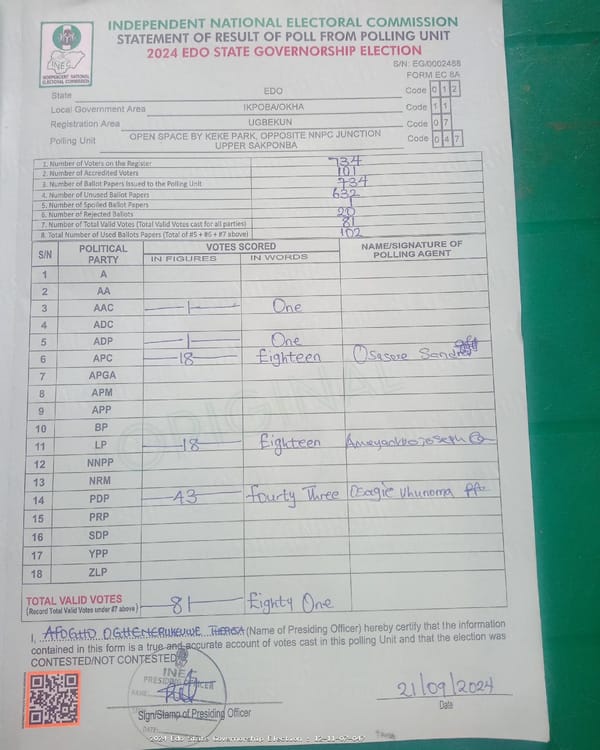 INDEPENDENT NATIONAL ELECTORAL COMMISSION
STATEMENT OF RESULT OF POLL FROM POLLING UNIT
2024 EDO STATE GOVERNORSHIP ELECTION
INEC
INDEPENDENT NATIONAL ELECTORAL COMMISSION
S/N: EG/0002488
FORM EC 8A
State EDO Code 0 1 2
Local Government Area IKPOBA/OKHA Code 1 1
Registration Area UGBEKUN Code 0 7
Polling Unit OPEN SPACE BY KEKE PARK, OPPOSITE NNPC JUNCTION UPPER SAKPONBA Code 0 4 7
1. Number of Voters on the Register 734
2. Number of Accredited Voters 101
3. Number of Ballot Papers Issued to the Polling Unit 734
4. Number of Unused Ballot Papers 632
5. Number of Spoiled Ballot Papers 1
6. Number of Rejected Ballots 20
7. Number of Total Valid Votes (Total Valid Votes cast for all parties) 81
8. Total Number of Used Ballots Papers (Total of #5 + #6 + #7 above) 102
S/N POLITICAL PARTY VOTES SCORED NAME/SIGNATURE OF POLLING AGENT
IN FIGURES IN WORDS
1 A
2 AA
3 AAC 1 One
4 ADC
5 ADP 1 One
6 APC 18 Eighteen Osasere Sandra
7 APGA
8 APM
9 APP
10 BP
11 LP 18 Eighteen Joseph
12 NNPP
13 NRM
14 PDP 43 Fourty Three Eagie Uhunoma
15 PRP
16 SDP
17 YPP
18 ZLP
TOTAL VALID VOTES 81 Eighty One
(Record Total Valid Votes under #7 above)
I, AFOGHO OGHENERUKEVWE THERESA (Name of Presiding Officer) hereby certify that the information
contained in this form is a true and accurate account of votes cast in this polling Unit and that the election was
CONTESTED/NOT CONTESTED
INEC
PRESIDING OFFICER
NAME:
DATE:
21/09/2024
Sign/Stamp of Presiding Officer
Date
2024 Edo State Governorship Election - 12-11-07-047